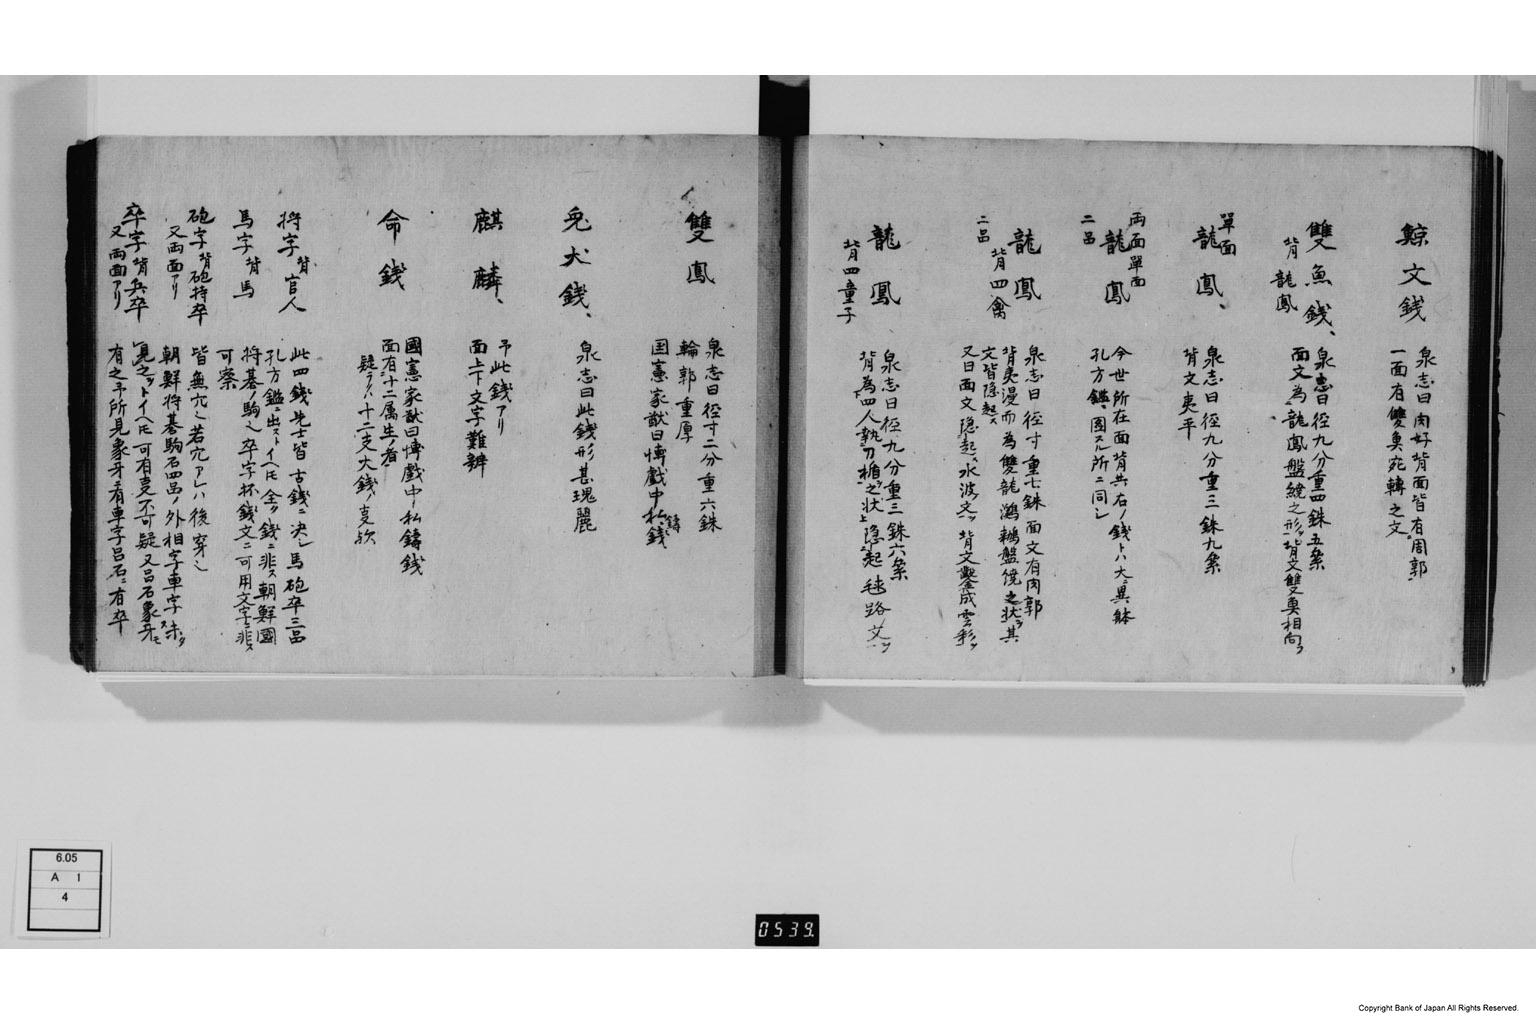 鯨文銭
泉志曰肉好背面皆有周郭
一面有雙魚宛轉之文
雙魚銭、
背 龍鳳
泉志曰径九分重四銖五絫
面文為龍鳳盤繞之形背文雙魚相向
單面
龍鳳、
泉志曰径九分重三銖九絫
背文夷平
両面單面
龍鳳
二品
今世所在面背共右ノ銭トハ大ニ異躰
孔方鑑ニ圖スル所ニ同シ
龍鳳
背四禽
二品
泉志曰径寸重七銖面文有肉郭
背夷漫而為雙龍鸂鶒盤繞之状其
文皆隠起ス
又曰面文隠起水波文背文鑿成雲彩
龍鳳
背四童子
泉志曰径九分重三銖六絫
背為四人執刀楯之状上隠起毬路文
雙鳳
泉志曰径寸二分重六銖
輪郭重厚
国憲家猷曰慱戯中私鑄銭
兎犬銭、
泉志曰此銭形甚瑰麗
麒麟、
予此銭アリ
面上下文字難辨
命銭
國憲家猷曰慱戯中私鑄銭
面有十二属生ノ者
疑ラハ十二支大銭ノ変欤
将字 背官人
馬字 背馬
砲字 背砲持卒
又両面アリ
卒字 背兵卒
又両面アリ
此四銭先士皆古銭ニ决シ馬砲卒三品
孔方鑑ニ出ストイヘ𪜈全ク銭ニ非ス朝鮮國
将棊ノ駒也卒字抔銭文ニ可用文字ニ非ス
可察
皆無穴也若穴アレハ後穿也
朝鮮将棊駒石四品ノ外相字車字未タ
見之ストイヘ𪜈可有事不可疑又品石象牙ニ
有之予所見象牙ニ有車字呂石ニ有卒
6.05
A 1
4
0539.
Copyright Bank of Japan All Rights Reserved.